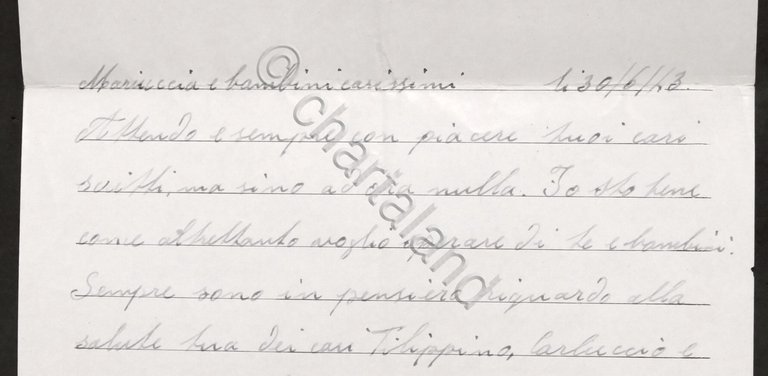 Mariuccia e bambini carissimi li 30/6/43.
Attendo e sempre con piacere tuoi cari
scritti, ma sino ad ora nulla. Io sto bene
come altrettanto voglio sperare di te e bambini.
Sempre sono in pensiero riguardo alla
salute tua dei cari Filippino, Carluccio e
© chartaland